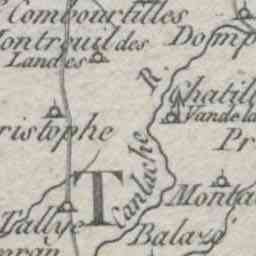 Combourtilles
Montreuil des
Landes
Domp
Chatill
Vandela
ristophe
Pr
R.
Canlache
T
Monta
Tallye
Balazé